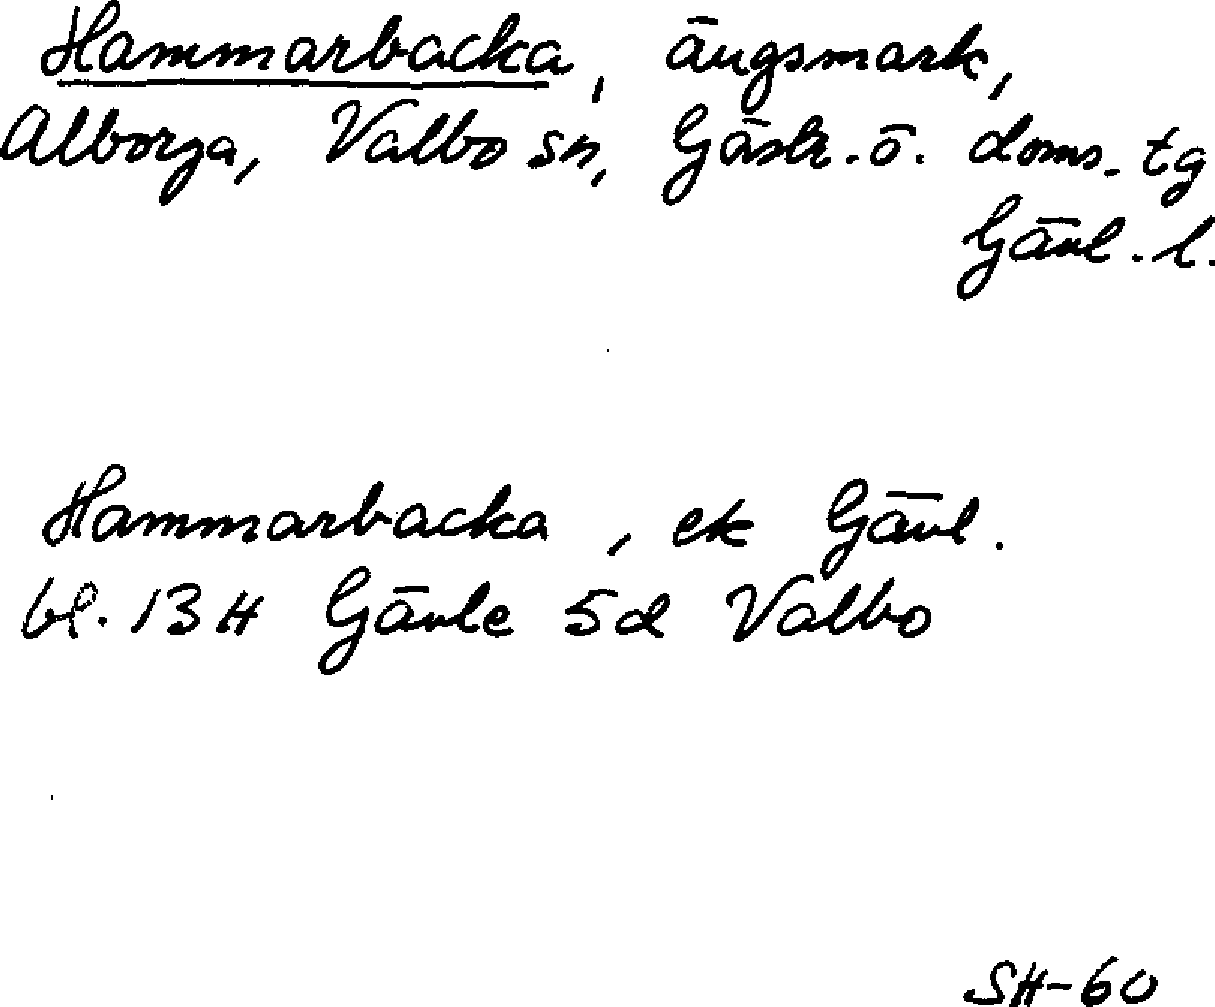 Hammarbacka, ängsmark,
Alborga, Valbo sn, Gästr. ö. doms. tg
Gävl. l.
Hammarbacka, ek Gävl.
bl. 13 H Gävle 5 d Valbo
SH-60